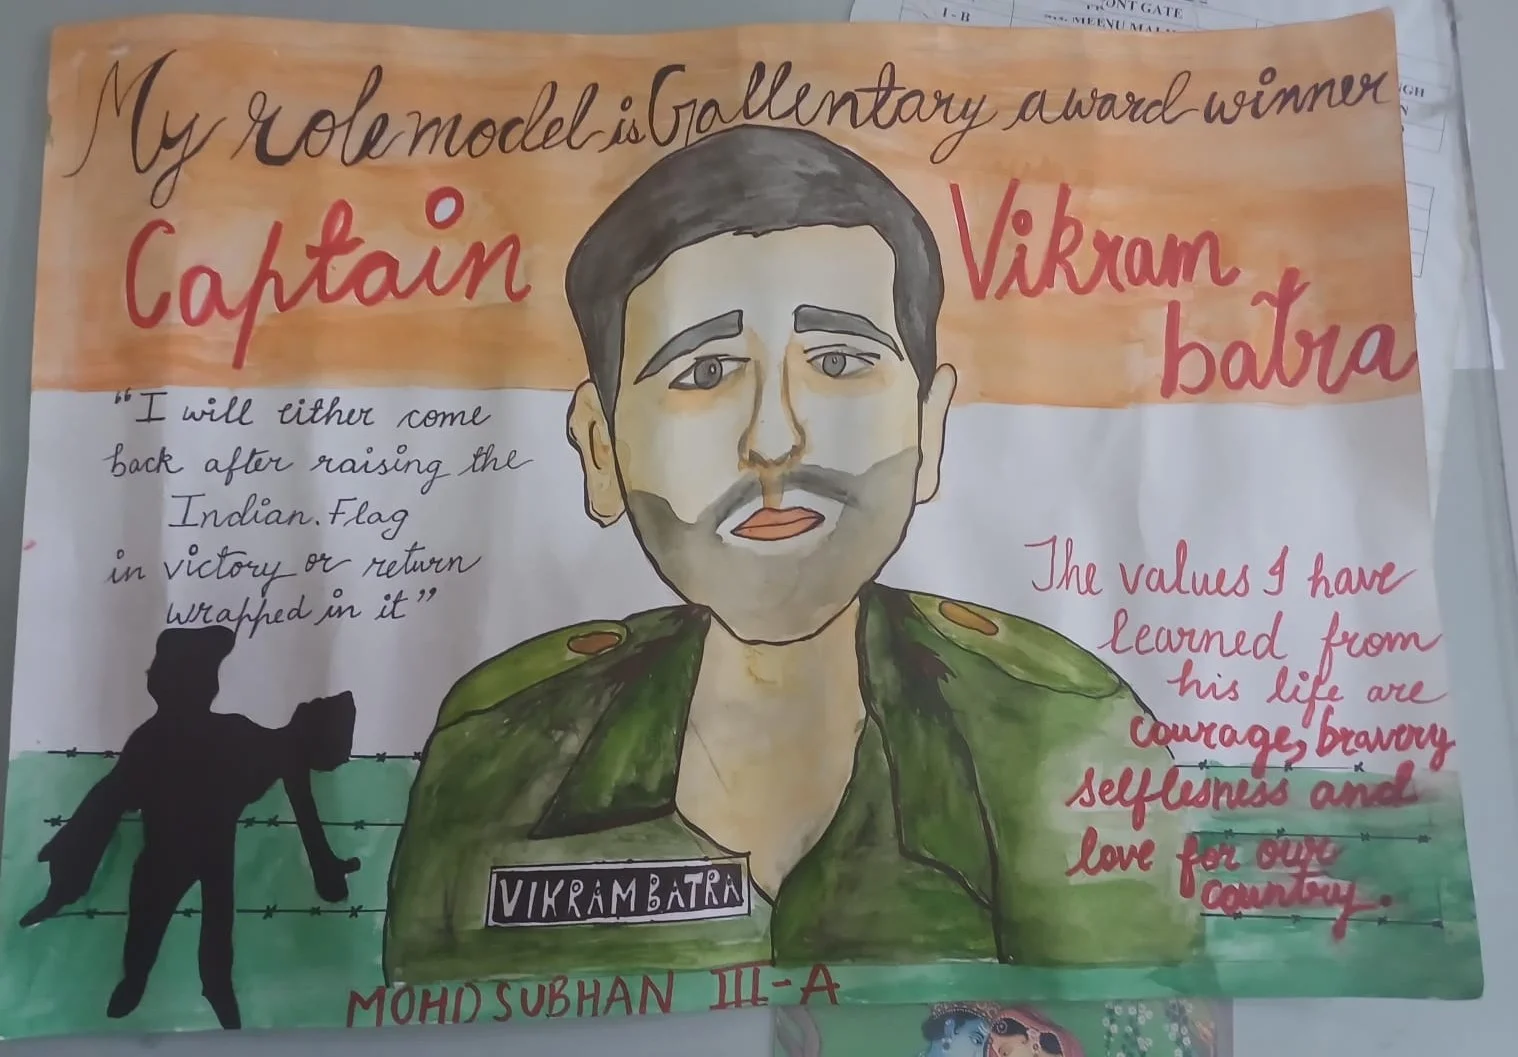 ONT GATE
I - B
MEENU
GH
N
My role model is Gallentary award winner
Captain
Vikram
batra
“I will either come
back after raising the
Indian. Flag
in victory or return
wrapped in it”
The values I have
learned from
his life are
courage, bravery
selflesness and
love for our
country.
VIKRAM BATRA
MOHD SUBHAN III-A